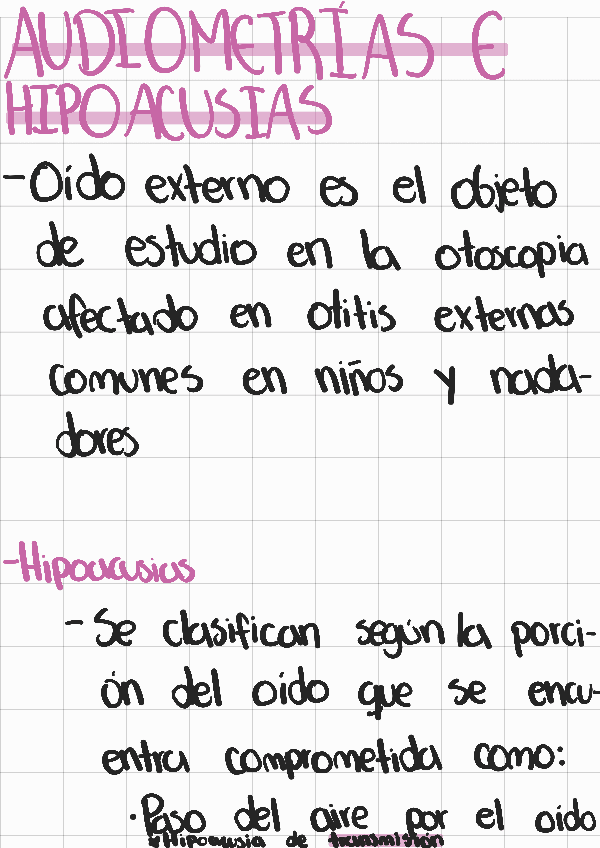 AUDIOMETRÍAS E
HIPOACUSIAS
-Oído externo es el objeto
de estudio en la otoscopia
afectado en otitis externas
comunes en niños y nada-
dores
-Hipoacusias
-Se clasifican según la porci-
ón del oído que se encu-
entra comprometida como:
·Paso del aire por el oído
*Hipoacusia de transmisión